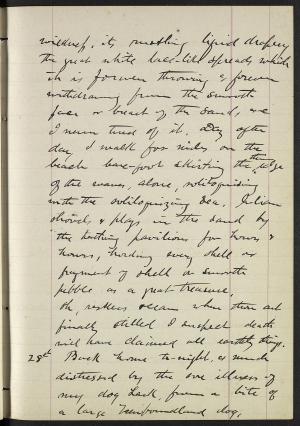 wildness, its rustling liquid drapery
the great white lace-like spreads which
it is forever throwing & forever
withdrawing from the smooth
face or breast of the sand, we
I never tired of it. Day after
day I walk for miles, on the
beach bare-foot skirting the edge
of the waves, alone, soliloquising
with the soliloquizing sea. Julian
shovels & plays in the sand by
the bathing pavilions for hours &
hours, hoarding every shell or
fragment of shell or smooth
pebble as a great treasure.
Oh, restless ocean when thou art
finally stilled I suspect death
will have claimed all earthly things.
28th Back home to-night, & much
distressed by the sore illness of
my dog Jack, from a bite of
a large Newfoundland dog.